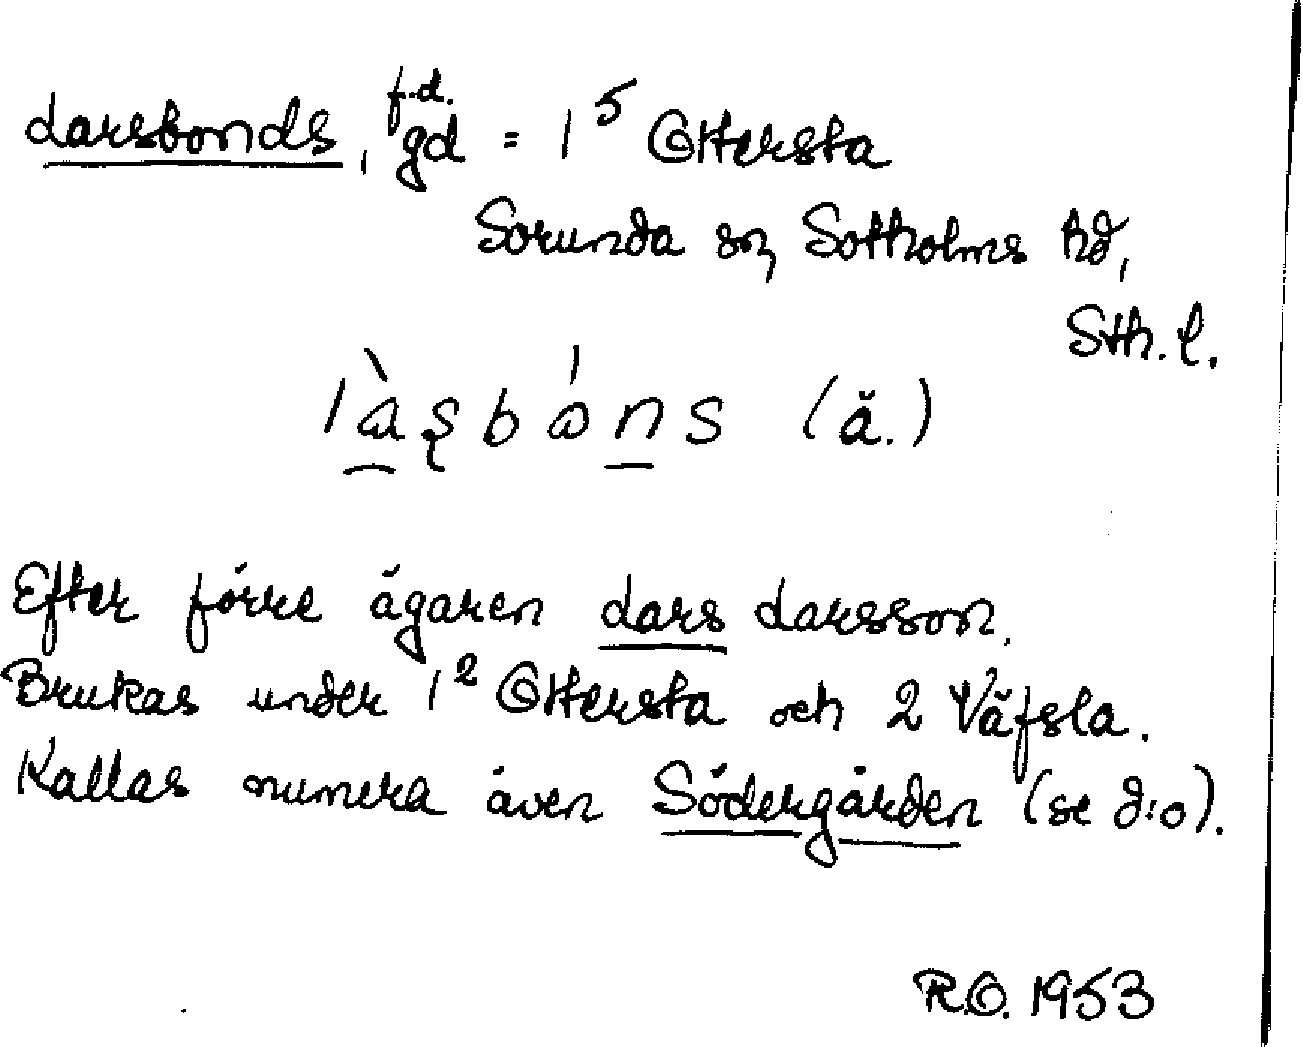 Larsbonds, f.d. gd = 1⁵ Ottersta
Sorunda sn, Sotholms hd,
Sth. l.
(ä.)
Efter förre ägaren Lars Larsson.
Brukas under 1² Ottersta och 2 Väfsla.
Kallas numera även Södergården (se d:o).
R.O. 1953